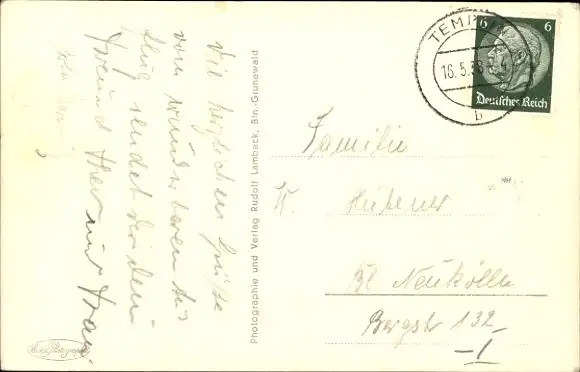 Viele herzlichen Grüße
vom wunderbaren Aus
flug sendet dir dein
Freund Theo und Frau.
Photographie und Verlag Rudolf Lambeck, Bln.-Grunewald
TEMPLIN
16.5.38
b
6 6
Deutsches Reich
Familie
K. Hübener
Bl Neukölln
Bergstr 132
-1